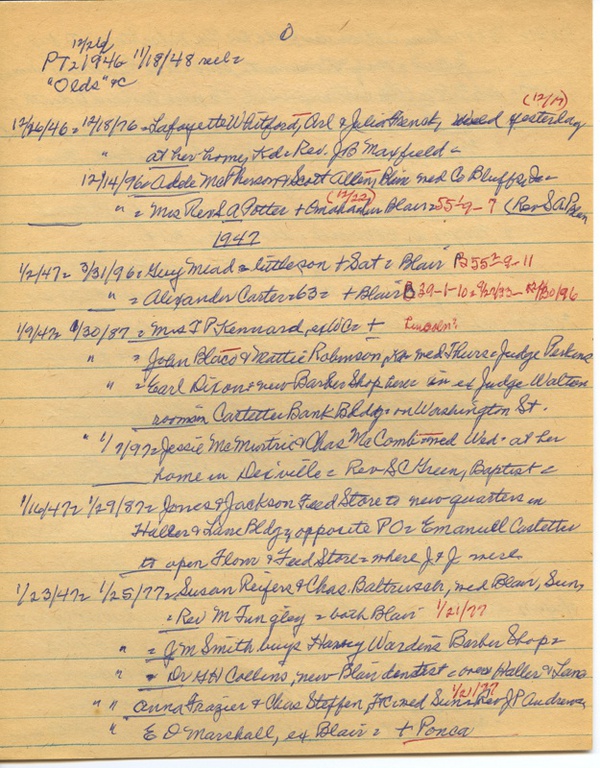 0
12/26
PT = 1946 11/18/48 reel =
"Olds" &c
(12/17)
12/26/46 = 12/18/76 = Lafayette Whitford, Arl & Julia French, wed yesterday
" at her home, Kd = Rev. J B Maxfield =
12/14/96 = Adele McPherson & Scott Allen, Blair wed Co Bluffs, Ia =
(12/22)
" = Mrs Rev S A Potter + Omaha Blair = 55-9-7 (Rev S A
1947
1/2/47 = 3/31/96 = Guy Miad = little son + Sat = Blair B 55-9-11
" = Alexander Carter = 63 = + Blair B 39-1-10 = 9/27/33 - 12/30/96
1/9/47 = 6/30/87 = Mrs T P Kennard, ex WC = + Lincoln?
" = John Blaco & Mattie Robinson, wed Thurs = Judge Perkins
" = Earl Dixon = new Barber Shop here in ex Judge Walton
rooms in Cartetter Bank Bldg = on Washington St.
" 1/7/97 = Jessie McMurtrie & Chas McComb = wed Wed = at her
home in Des'ville = Rev S C Green, Baptist =
1/16/47 = 1/29/87 = Jones & Jackson Feed Store to new quarters in
Haller & Lane Bldg, opposite PO = Emanuel Castetter
to open Flour & Feed Store = where J & J were
1/23/47 = 1/25/77 = Susan Reifers & Chas. Baltzusch, wed Blair, Sun,
= Rev M Tungley = both Blair 1/21/77
" = J M Smith buys Harvey Warden's Barber Shop =
" = Dr H H Collins, new Blair dentist = over Haller & Lane
1/21/77
" " Anna Frazier & Chas Steffen, wed Sun = Rev J P Andrews
" E D Marshall, ex Blair = + Ponca